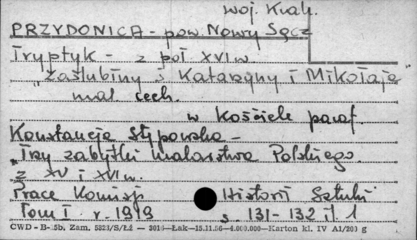 woj. Krak.
PRZYDONICA - pow. Nowy Sącz
Tryptyk - z poł XVI w.
"Zaślubiny ś Katarzyny i Mikołaja"
mal. cech.
w kościele paraf.
Konstancja Stępowska -
"Trzy zabytki malarstwa Polskiego
z XV i XVI w.
Prace Komisji Historii Sztuki
Tom I. r. 1919 s 131-132 il. 1
CWD - B-25b. Zam. 5823/S/Łż — — Łak—15.11.56—4.000.000—Karton kl. IV A1/200 g